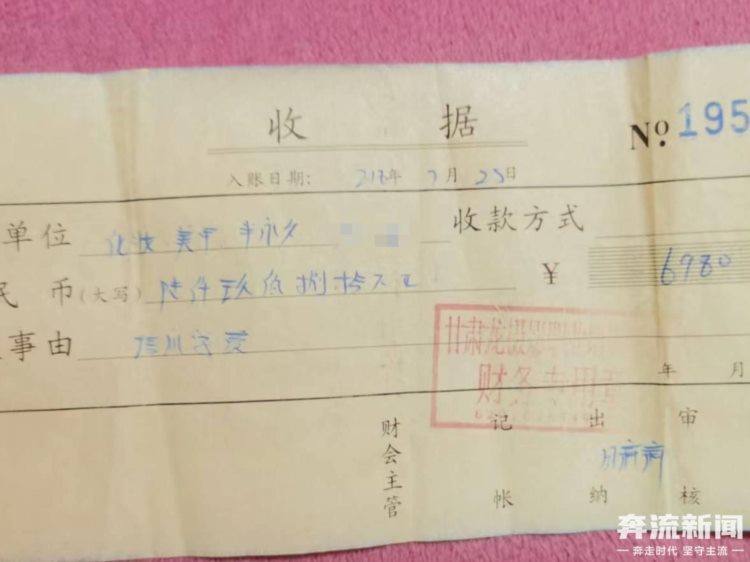 收 据
Nº 195
入账日期: 218年7月23日
单位 化妆 美甲 半永久 收款方式
民 币(大写) 陆仟玖佰捌拾元正 ¥ 6980
事由 培训
甘肃龙摄影
财务专用章
年 月
财会主管 记帐 出纳 审核
奔流新闻
奔走时代 坚守主流